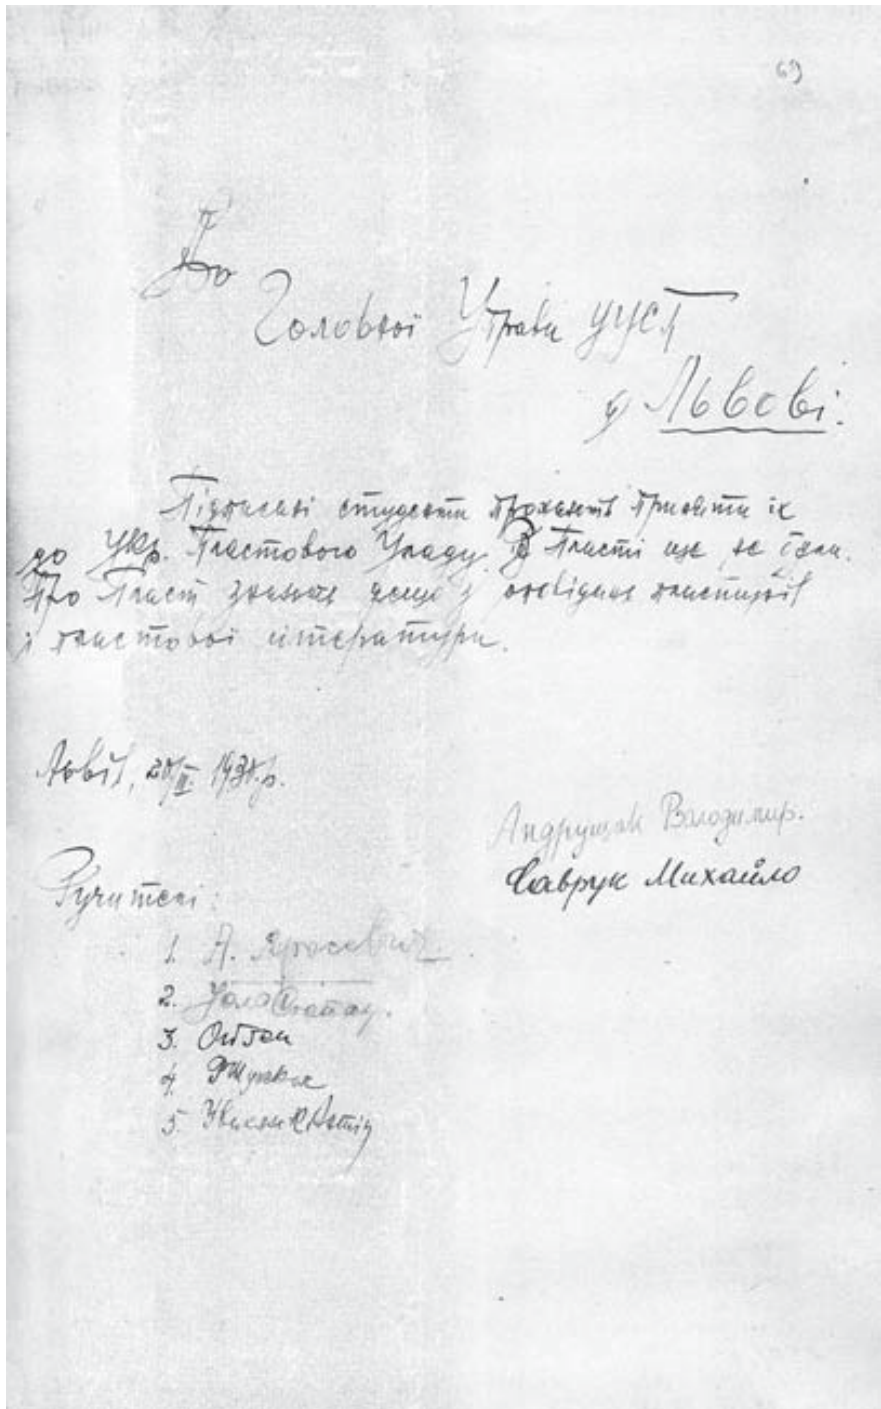 До
Головної Управи УУСП
у Львові.
Підписані студенти прохають приняти їх
до Укр. Пластового Уладу. В Пласті ще не були.
Про Пласт знають дещо з оповідань пластунів
і пластової літератури.
Львів, 1930 р.
Андрущак Володимир.
Саврук Михайло
Ручителі:
1. А.
2.
3.
4.
5.